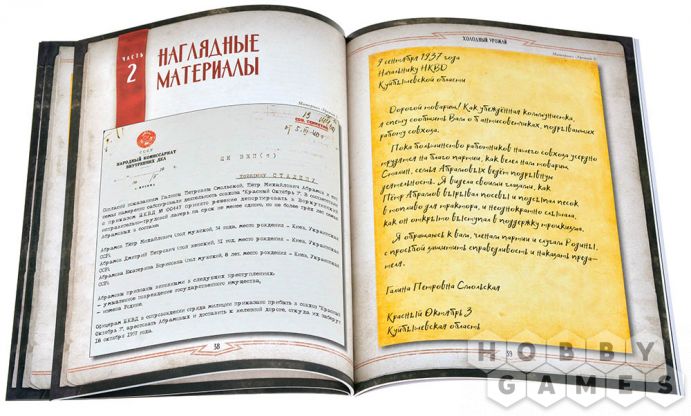 ЧАСТЬ
2
НАГЛЯДНЫЕ
МАТЕРИАЛЫ
СССР
НАРОДНЫЙ КОМИССАРИАТ
ВНУТРЕННИХ ДЕЛ
ЦК ВКП(б)
товарищу СТАЛИНУ
Согласно показаниям Галины Петровны Смольской, Пётр Михайлович Абрамов и его
семья намеренно саботировали деятельность совхоза "Красный Октябрь 3". В соответствии
с приказом НКВД № 00447 принято решение депортировать в Воркутинский
исправительно-трудовой лагерь на срок не менее одного, но не более трёх лет семью
Абрамовых в составе
Абрамов Пётр Михайлович (пол мужской, 34 года, место рождения - Киев, Украинская
ССР)
Абрамов Дмитрий Петрович (пол мужской, 11 лет, место рождения - Киев, Украинская
ССР)
Абрамова Екатерина Борисовна (пол женский, 8 лет, место рождения - Киев, Украинская
ССР)
Абрамовы признаны виновными в следующих преступлениях:
- умышленное повреждение государственного имущества,
- измена Родине.
Офицерам НКВД в сопровождении отряда милиции приказано прибыть в совхоз "Красный
Октябрь 3", арестовать Абрамовых и доставить к железной дороге, откуда их заберут
16 октября 1937 года.
38
ХОЛОДНЫЙ УРОЖАЙ
9 сентября 1937 года
Начальнику НКВД
Куйбышевской области
Дорогой товарищ! Как убеждённая коммунистка,
я спешу сообщить Вам о антисоветчиках, подрывающих
работу совхоза.
Пока большинство работников нашего совхоза усердно
трудятся на благо партии, как велел нам товарищ
Сталин, семья Абрамовых ведёт подрывную
деятельность. Я видела своими глазами, как
Пётр Абрамов вырывал посевы и подсыпал песок
в топливо для трактора, и неоднократно слышала,
как он открыто выступал в поддержку троцкизма.
Я обращаюсь к вам, членам партии и слугам Родины,
с просьбой защитить справедливость и наказать преда-
теля.
Галина Петровна Смольская
Красный Октябрь 3
Куйбышевская область
39
HOBBY
GAMES